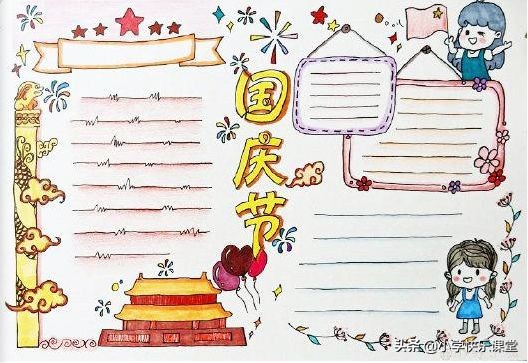 国
庆
节
头条@小学快乐课堂